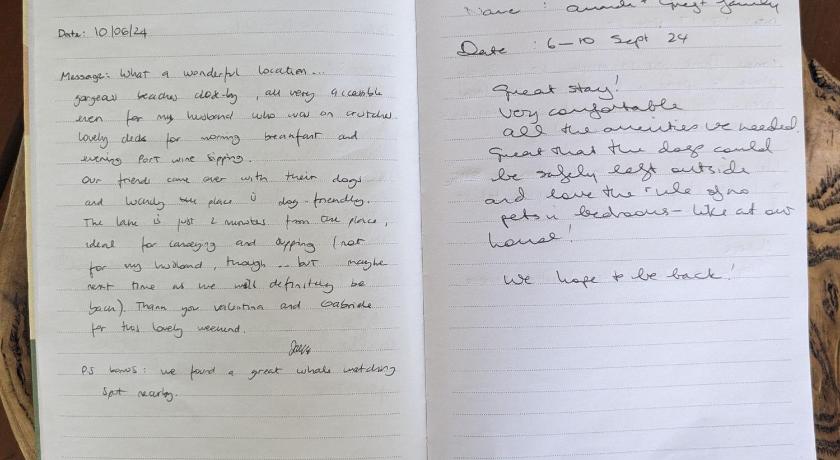 Date: 10/06/24
Message: What a wonderful location...
gorgeous beaches close-by, all very accessible
even for my husband who was on crutches.
lovely deck for morning breakfast and
evening Port wine sipping.
Our friends came over with their dogs
and luckily the place is dog-friendly.
The lake is just 2 minutes from the place,
ideal for canoeing and dipping (not
for my husband, though... but maybe
next time as we will definitely be
back). Thank you Valentina and Gabriele
for this lovely weekend.
PS bonus: we found a great whale watching
spot nearby.
Name : & Greg family
Date : 6-10 Sept 24
Great stay!
Very comfortable
all the amenities we needed.
Great that the dogs could
be safely left outside
and love the rule of no
pets in bedrooms - like at our
house!
We hope to be back!